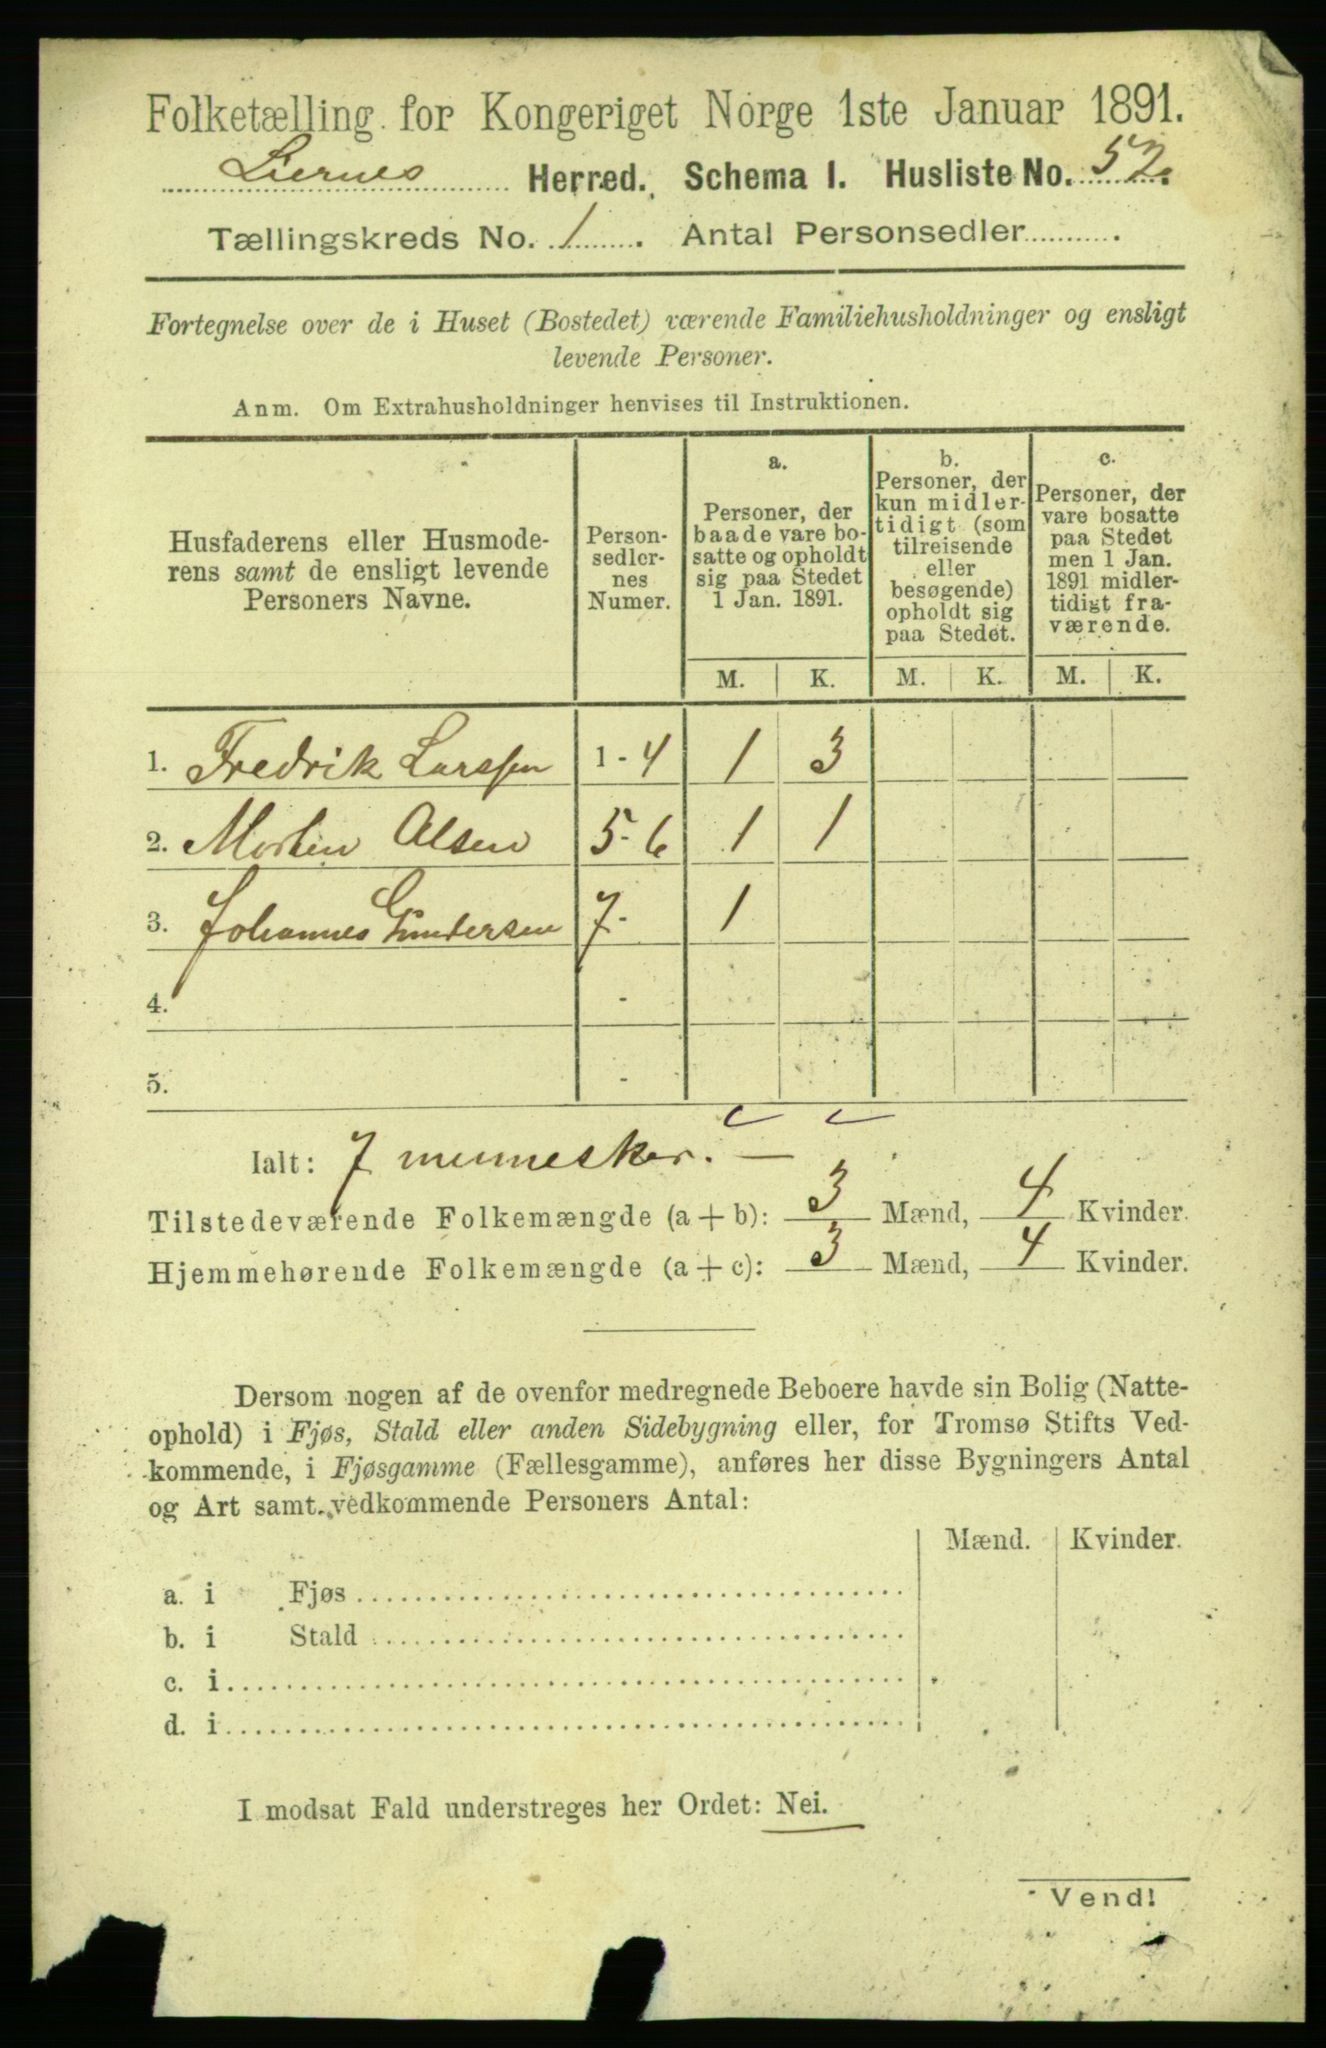 Folketælling for Kongeriget Norge 1ste Januar 1891.
Liernes Herred. Schema I. Husliste No. 52.
Tællingskreds No. 1. Antal Personsedler
Fortegnelse over de i Huset (Bostedet) værende Familiehusholdninger og ensligt
levende Personer.
Anm. Om Extrahusholdninger henvises til Instruktionen.
Husfaderens eller Husmode-
rens samt de ensligt levende
Personers Navne.
Person-
sedler-
nes
Numer.
a.
Personer, der
baade vare bo-
satte og opholdt
sig paa Stedet
1 Jan. 1891.
b.
Personer, der
kun midler-
tidigt (som
tilreisende
eller
besøgende)
opholdt sig
paa Stedet.
c.
Personer, der
vare bosatte
paa Stedet
men 1 Jan.
1891 midler-
tidigt fra-
værende.
M. K. M. K. M. K.
1. Fredrik Larssen 1 - 4 1 3
2. Morten Olsen 5 - 6 1 1
3. Johannes Gundersen 7 - 1
4. -
5. -
Ialt: 7 mennesker. —
Tilstedeværende Folkemængde (a + b): 3 Mænd, 4 Kvinder.
Hjemmehørende Folkemængde (a + c): 3 Mænd, 4 Kvinder.
Dersom nogen af de ovenfor medregnede Beboere havde sin Bolig (Natte-
ophold) i Fjøs, Stald eller anden Sidebygning eller, for Tromsø Stifts Ved-
kommende, i Fjøsgamme (Fællesgamme), anføres her disse Bygningers Antal
og Art samt vedkommende Personers Antal:
Mænd. Kvinder.
a. i Fjøs
b. i Stald
c. i
d. i
I modsat Fald understreges her Ordet: Nei.
Vend!